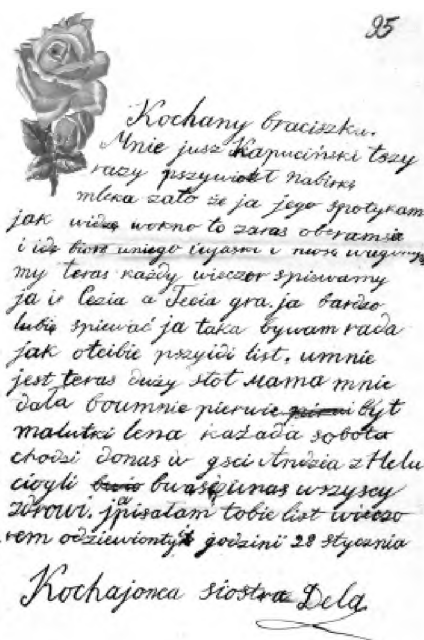 95
Kochany braciszku.
Mnie jusz Kapuciński tszy
razy pszywiozt nabirkę
mleka zato że ja jego spotykam
jak widzę wokno to zaras oberamsia
i idę biorę uniego i niosę
my teras każdy wieczor spiswamy
ja i Lezia a Tecia gra. ja bardzo
lubię spiewać ja taka bywam rada
jak otcibie pszyidi list. umnie
jest teras duży stoł Mama mnie
dała boumnie pierwie był
malutki lena każada sobota
chodzi donas w gsci Andzia z Helu
ciogli bwaseunas wszyscy
zdrowi. ja pisałam tobie list wieczo
rem odziewionty godzini 28 stycznia
Kochajonca siostra Dela